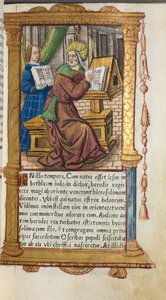 N illo tempore. Cum natus esset Iesus in
bethleem iude in diebus herodis regis
ecce magi ab oriente venerunt hierosolimam
dicentes. Ubi qui natus est rex iudeorum.
Vidimus enim stellam eius in oriente et veni
mus cum muneribus adorare eum. Audiens
autem herodes rex turbatus est et omnis
cum illo. Et congregans omnes prin
cipes sacerdotum Et scribas populi sciscitaba
tur ab eis ubi nasceretur. At illi